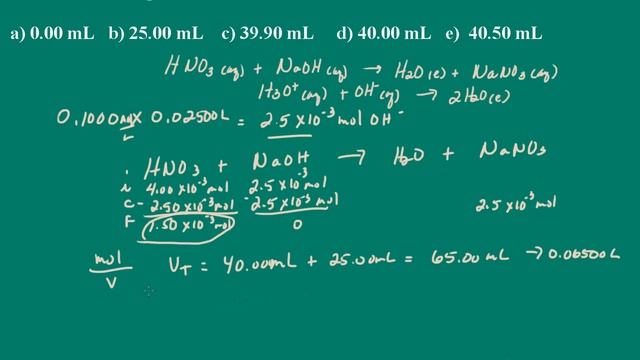 a) 0.00 mL b) 25.00 mL c) 39.90 mL d) 40.00 mL e) 40.50 mL
HNO₃(aq) + NaOH(aq) → H₂O(l) + NaNO₃(aq)
H₃O⁺(aq) + OH⁻(aq) → 2H₂O(l)
0.1000 mol/L × 0.02500L = 2.5 × 10⁻³ mol OH⁻
HNO₃ + NaOH → H₂O + NaNO₃
i 4.00 × 10⁻³ mol 2.5 × 10⁻³ mol
C - 2.50 × 10⁻³ mol - 2.5 × 10⁻³ mol 2.5 × 10⁻³ mol
F 1.50 × 10⁻³ mol 0
mol/V V_T = 40.00mL + 25.00mL = 65.00 mL → 0.06500L